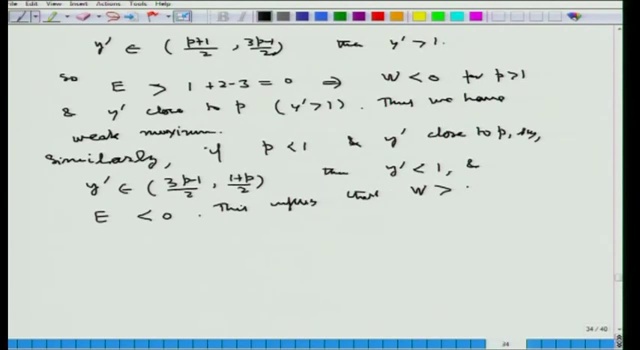 File Edit View Insert Actions Tools Help
y' ∈ ( p+1/2 , 3p-1/2 ) then y' > 1.
So E > 1 + 2 - 3 = 0 ⇒ W < 0 for p > 1
& y' close to p ( y' > 1 ) . Thus we have
weak maximum.
Similarly, if p < 1 & y' close to p, say,
y' ∈ ( 3p-1/2 , 1+p/2 ) then y' < 1, &
E < 0 . This implies that W >
34 / 40
34